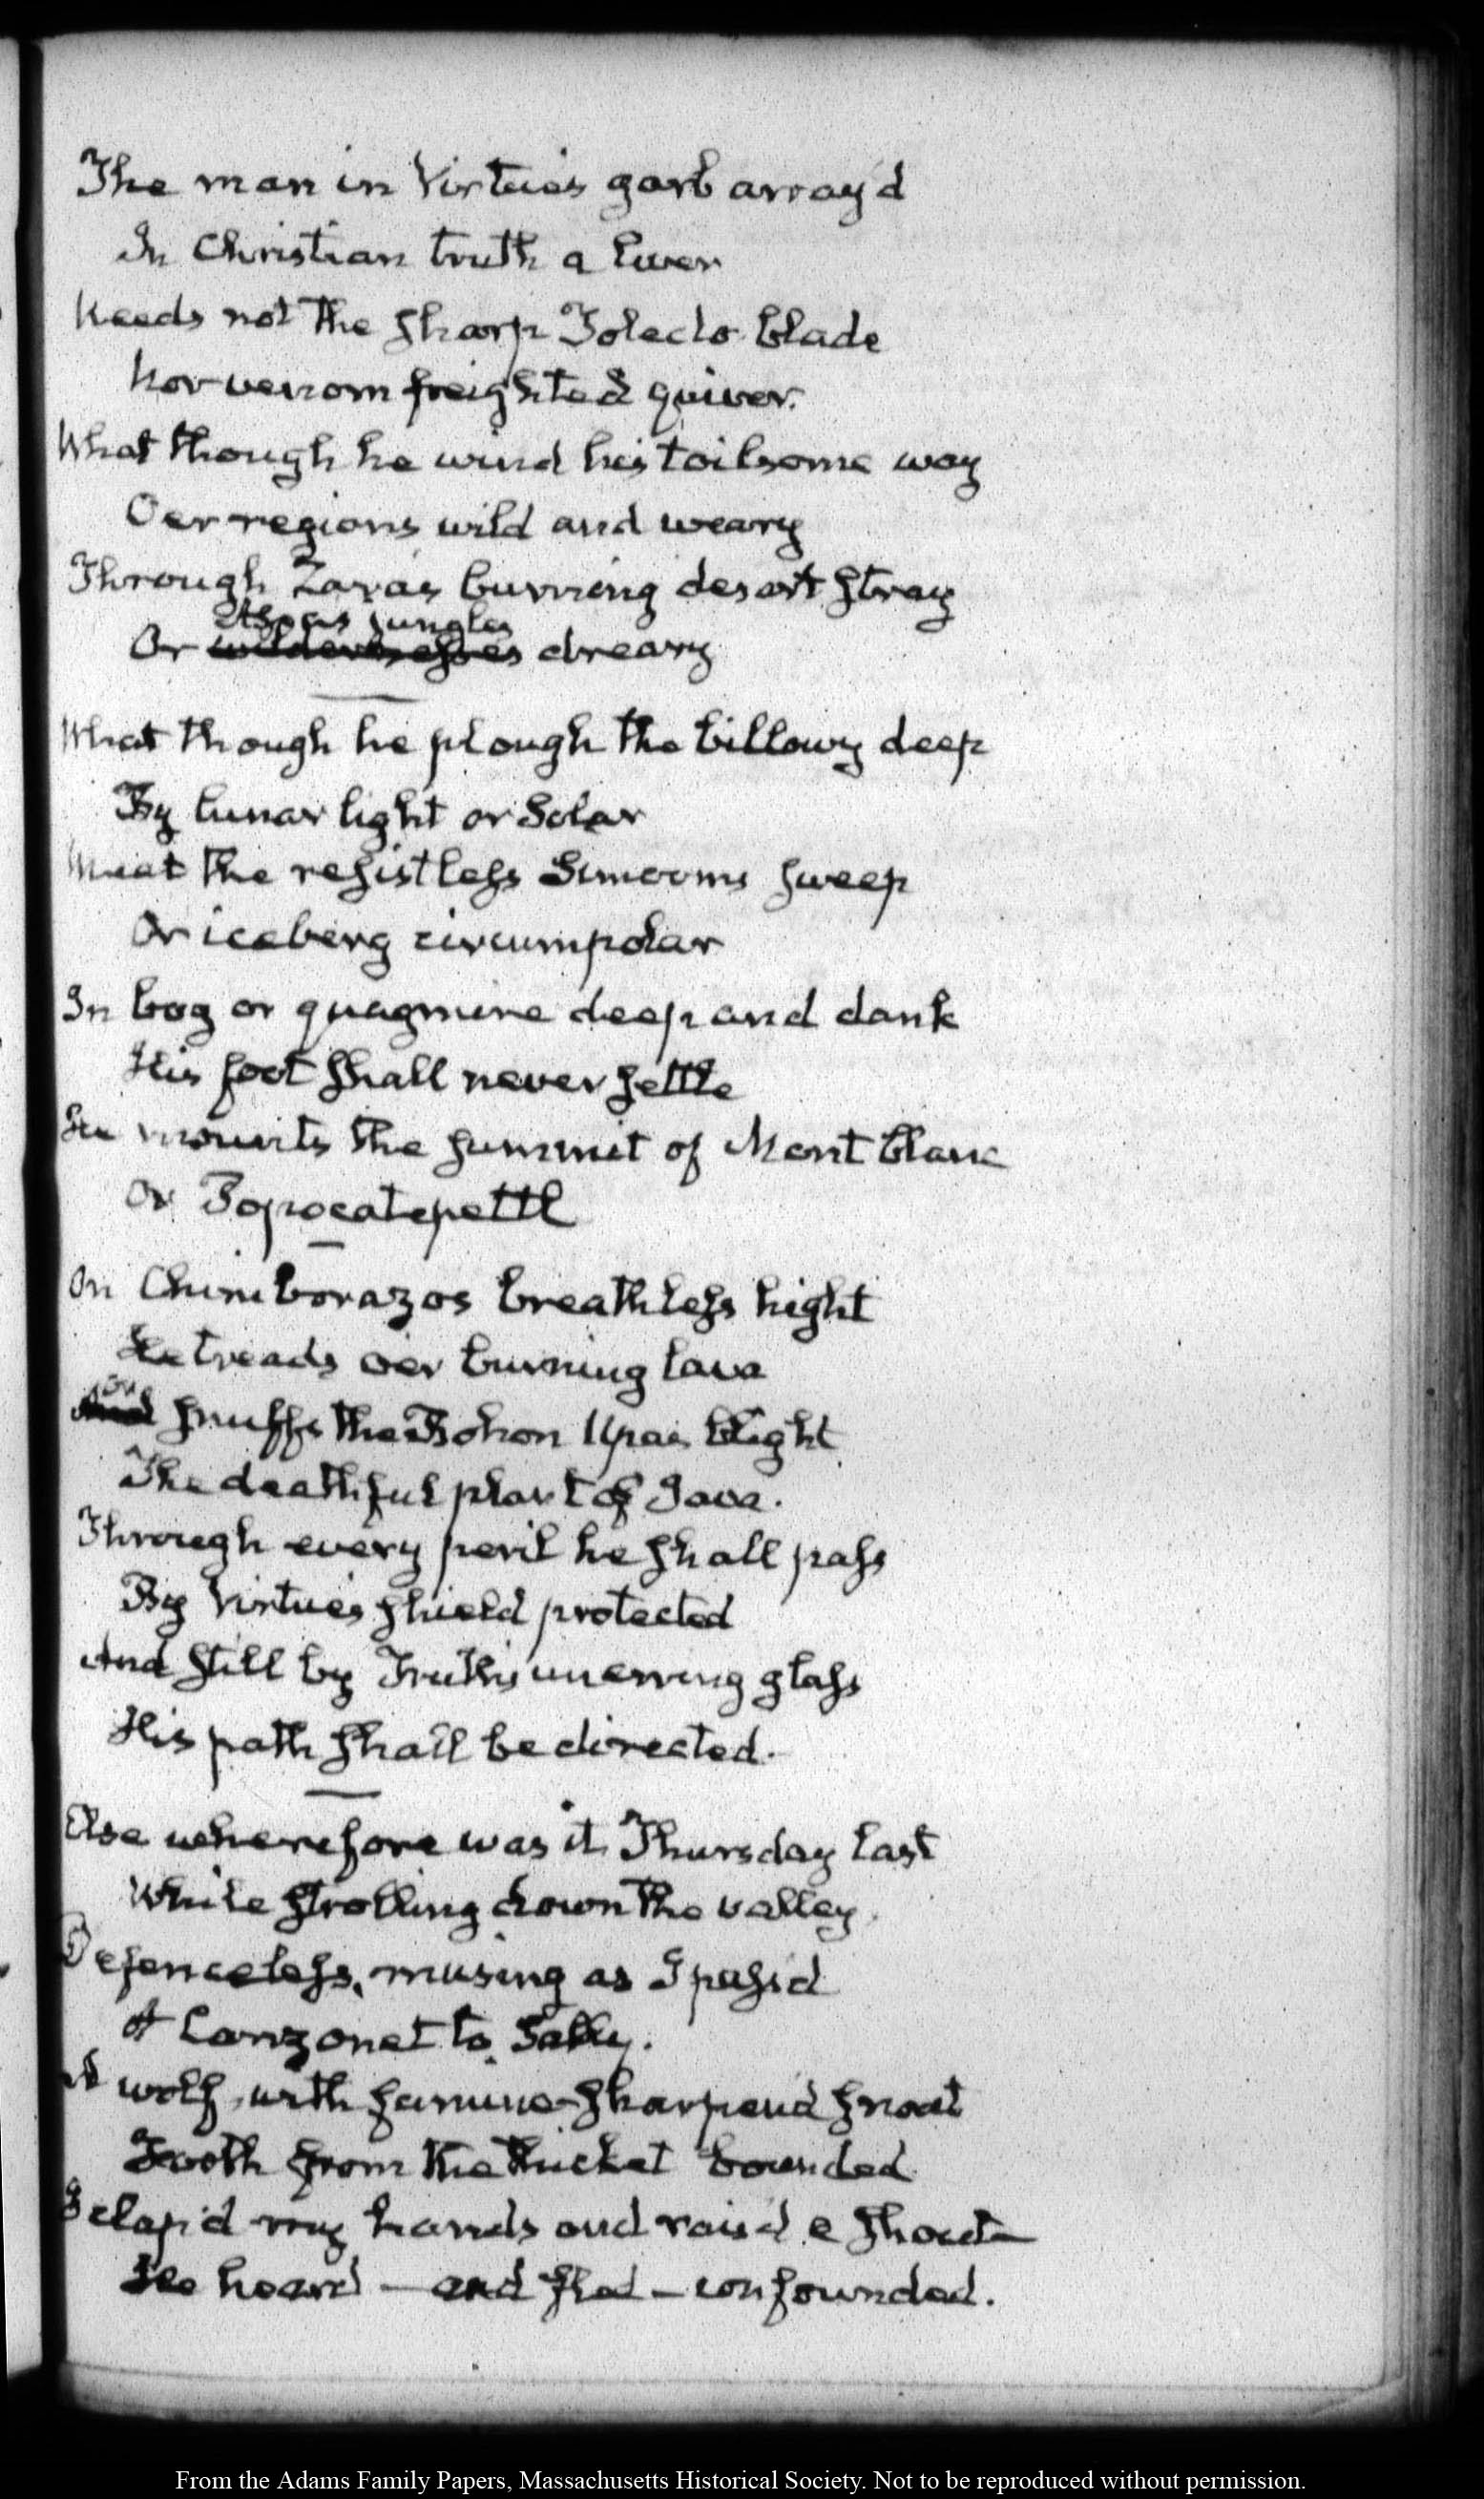 The man in Virtue's garb array'd
In Christian truth a liver
Needs not the sharp Toledo blade
Nor venom freighted quiver.
What though he wind his toilsome way
O'er regions wild and weary
Through Zara's burning desert stray
Asia's jungles
Or wildernesses dreary
What though he plough the billowy deep
By lunar light or Solar
Meet the resistless Simooms sweep
Or iceberg circumpolar
In bog or quagmire deep and dank
His foot shall never settle
He mounts the summit of Mont blanc
Or Popocatepettl
On Chimborazos breathless hight
He treads o'er burning lava
And snuffs the Bohon Upas blight
The deathful plant of Java.
Through every peril he shall pass
By Virtue's shield protected
And still by Truth's unerring glass
His path shall be directed.
Else wherefore was it Thursday last
While strolling down the valley
Defenceless, musing as I pass'd
A Canzonet to Sally.
A wolf, with famine-sharpend snout
Forth from the thicket bounded
I clap'd my hands and rais'd a shout—
He heard — and fled — confounded.
From the Adams Family Papers, Massachusetts Historical Society. Not to be reproduced without permission.